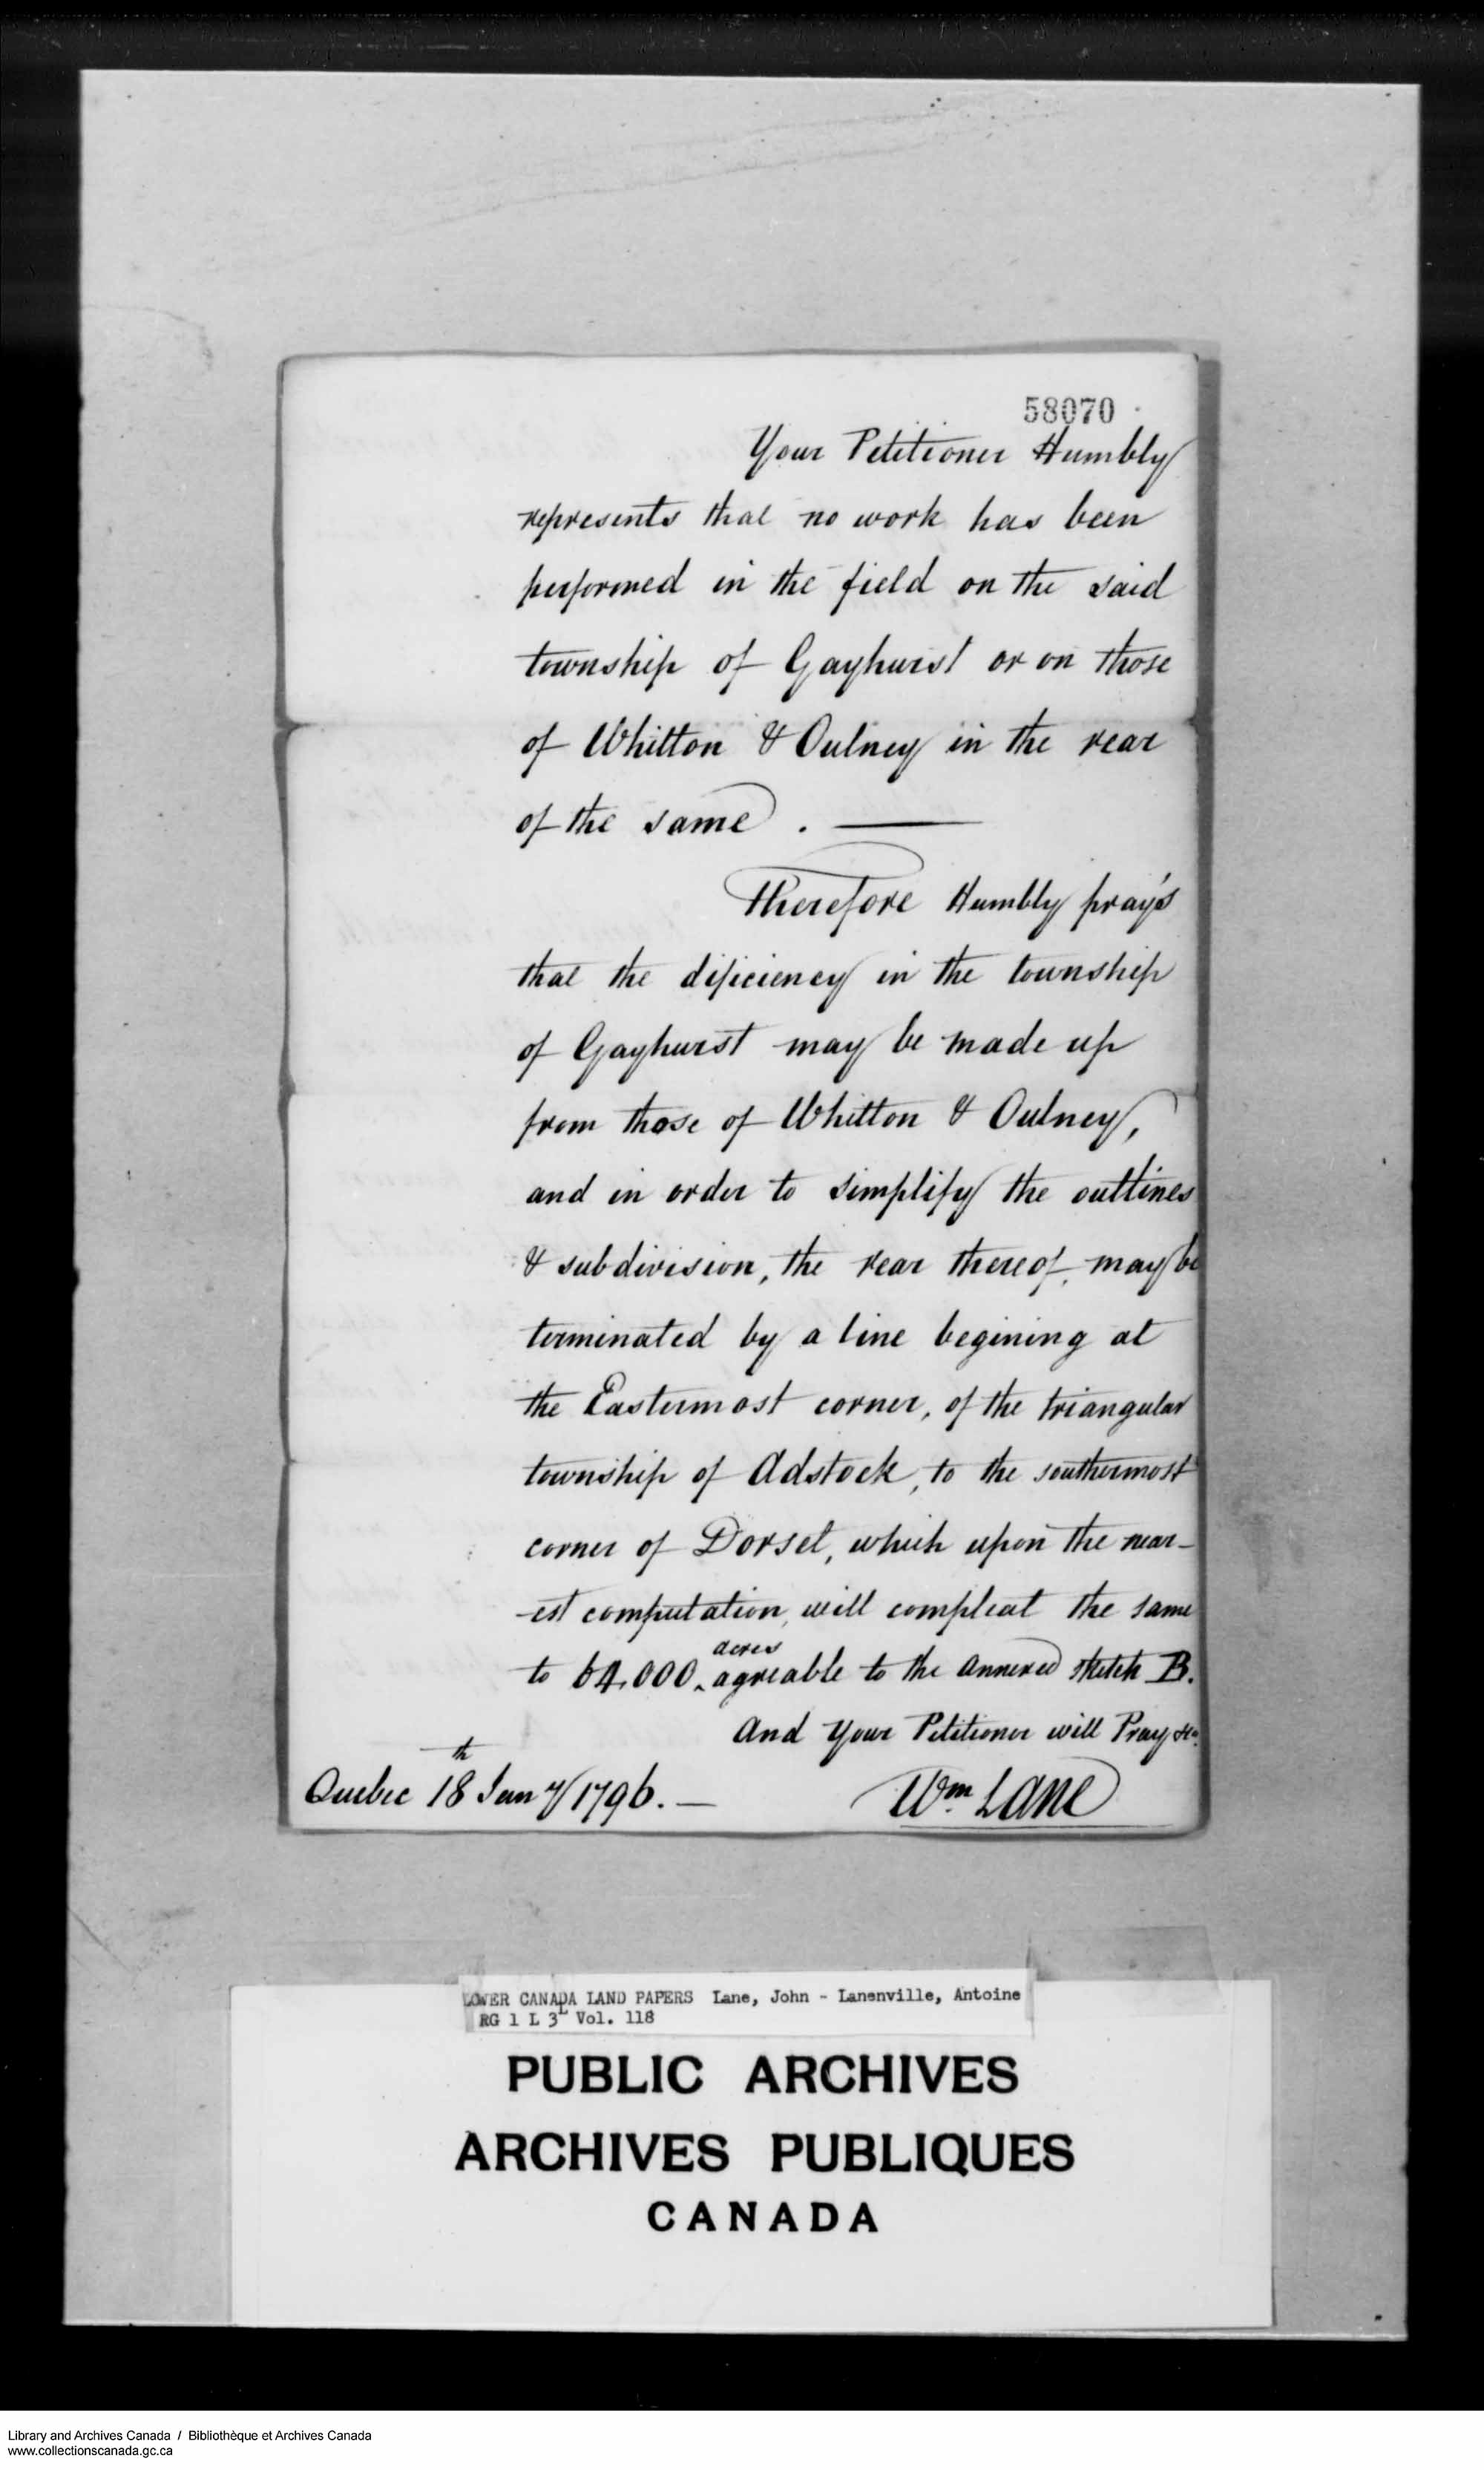 58070
Your Petitioner Humbly
represents that no work has been
performed in the field on the said
township of Gayhurst or on those
of Whitton & Oulney in the rear
of the same.
Therefore Humbly pray's
that the dificiency in the township
of Gayhurst may be made up
from those of Whitton & Oulney,
and in order to simplify the outlines
& subdivision, the rear thereof, may be
terminated by a line begining at
the Eastermost corner, of the triangular
township of Adstock, to the southermost
corner of Dorset, which upon the near-
-est computation, will compleat the same
to 64,000 ^acres agreable to the annexed sketch B.
And Your Petitioner will Pray &c.
Quebec 18th Jany 1796. —
Wm. Lane
LOWER CANADA LAND PAPERS Lane, John - Lanenville, Antoine
RG 1 L 3L Vol. 118
PUBLIC ARCHIVES
ARCHIVES PUBLIQUES
CANADA
Library and Archives Canada / Bibliothèque et Archives Canada
www.collectionscanada.gc.ca